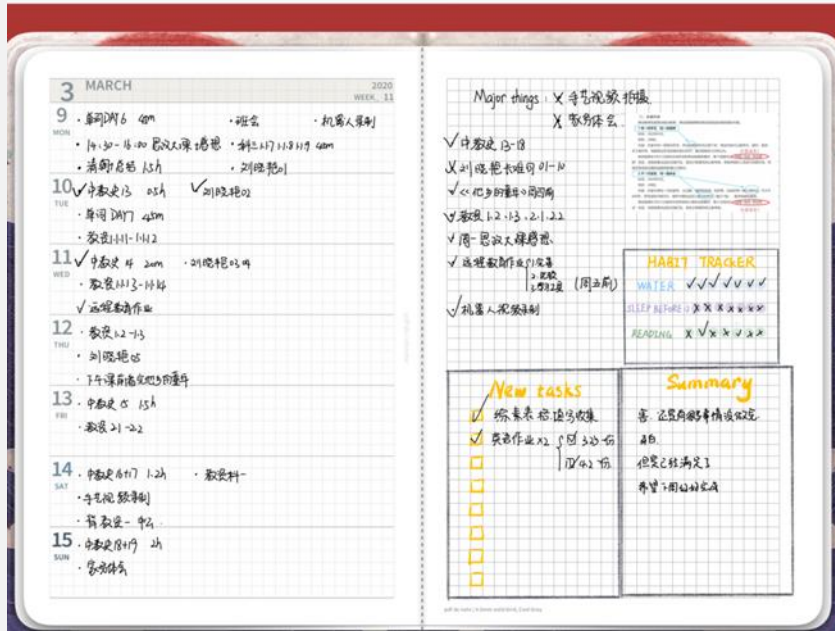 3 MARCH 2020
WEEK. 11
9 MON
· 单词DAY6 40m · 班会 · 机器人录制
· 14:30-16:00 思政大课+感想 · 科三1.17 1.18 1.19 40m
1.5h · 刘晓艳01
10 TUE
✓ 中教史13 0.5h ✓ 刘晓艳02
· 单词DAY7 45m
· 教资1.1.11-1.1.12
11 WED
✓ 中教史14 20m · 刘晓艳03.04
· 教资1.1.13-1.1.14
✓ 远程教育作业
12 THU
· 教资1.2-1.3
· 刘晓艳05
· 下午课前看完把乡的童年
13 FRI
· 中教史15 1.5h
· 教资2.1-2.2
14 SAT
· 中教史16+17 1.2h · 教资科一
· 手艺视频录制
· 背教资一
15 SUN
· 中教史18+19 2h
· 家务体会
Major things : X 手艺视频拍摄
X 家务体会
✓ 中教史 13-18
X 刘晓艳长难句 01-10
的童年>>周四前
✓ 教资1.2 -1.3 .2.1 .2.2
✓ 周一思政大课感想
✓ 远程教育作业 1.
2.
3. (周五前)
✓ 机器人视频录制
HABIT TRACKER
WATER ✓ ✓ ✓ ✓ ✓ ✓ ✓
SLEEP BEFORE 12 X X X X X X X
READING X ✓ X X X X X
New tasks
✓ 综素表格填写收集
✓ 英语作业x2 ☑ 3.23前
☑ 4.2前
Summary
害. 还是有很多事情没做完
但是已经满足了
希望下周好好完成